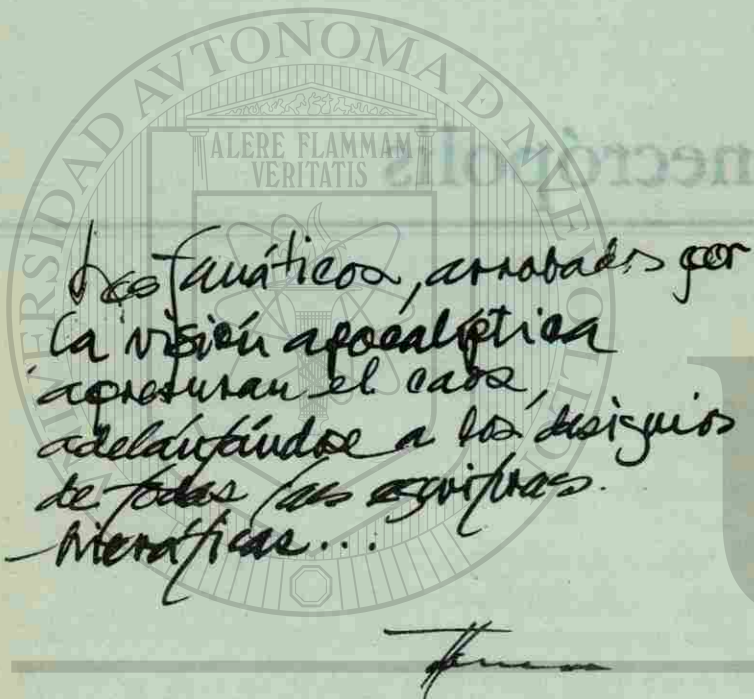 UNIVERSIDAD AUTONOMA DE NUEVO LEON
ALERE FLAMMAM
VERITATIS
necrópolis
Los fanáticos, arrobados por
la visión apocalíptica
apresuran el caos,
adelantándose a los designios
de todas las escrituras.
hieráticas...